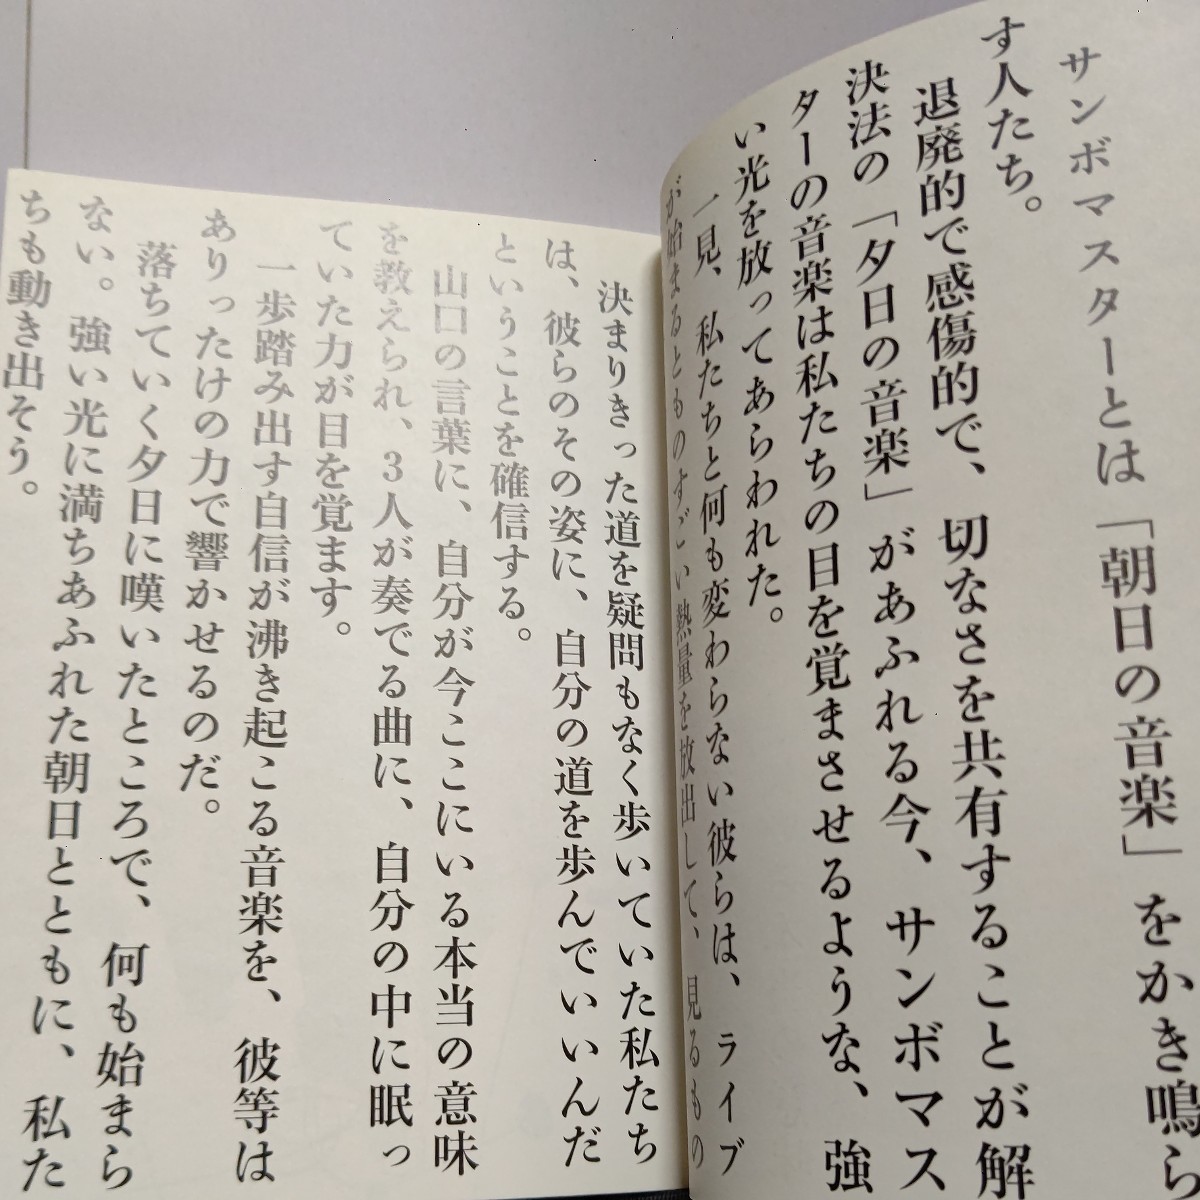 サンボマスターとは「朝日の音楽」をかき鳴ら
す人たち。
退廃的で感傷的で、切なさを共有することが解
決法の「夕日の音楽」があふれる今、サンボマス
ターの音楽は私たちの目を覚まさせるような、強
い光を放ってあらわれた。
一見、私たちと何も変わらない彼らは、ライブ
が始まるとものすごい熱量を放出して、見るもの
決まりきった道を疑問もなく歩いていた私たち
は、彼らのその姿に、自分の道を歩んでいいんだ
ということを確信する。
山口の言葉に、自分が今ここにいる本当の意味
を教えられ、3人が奏でる曲に、自分の中に眠っ
ていた力が目を覚ます。
一歩踏み出す自信が沸き起こる音楽を、彼等は
ありったけの力で響かせるのだ。
落ちていく夕日に嘆いたところで、何も始まら
ない。強い光に満ちあふれた朝日とともに、私た
ちも動き出そう。